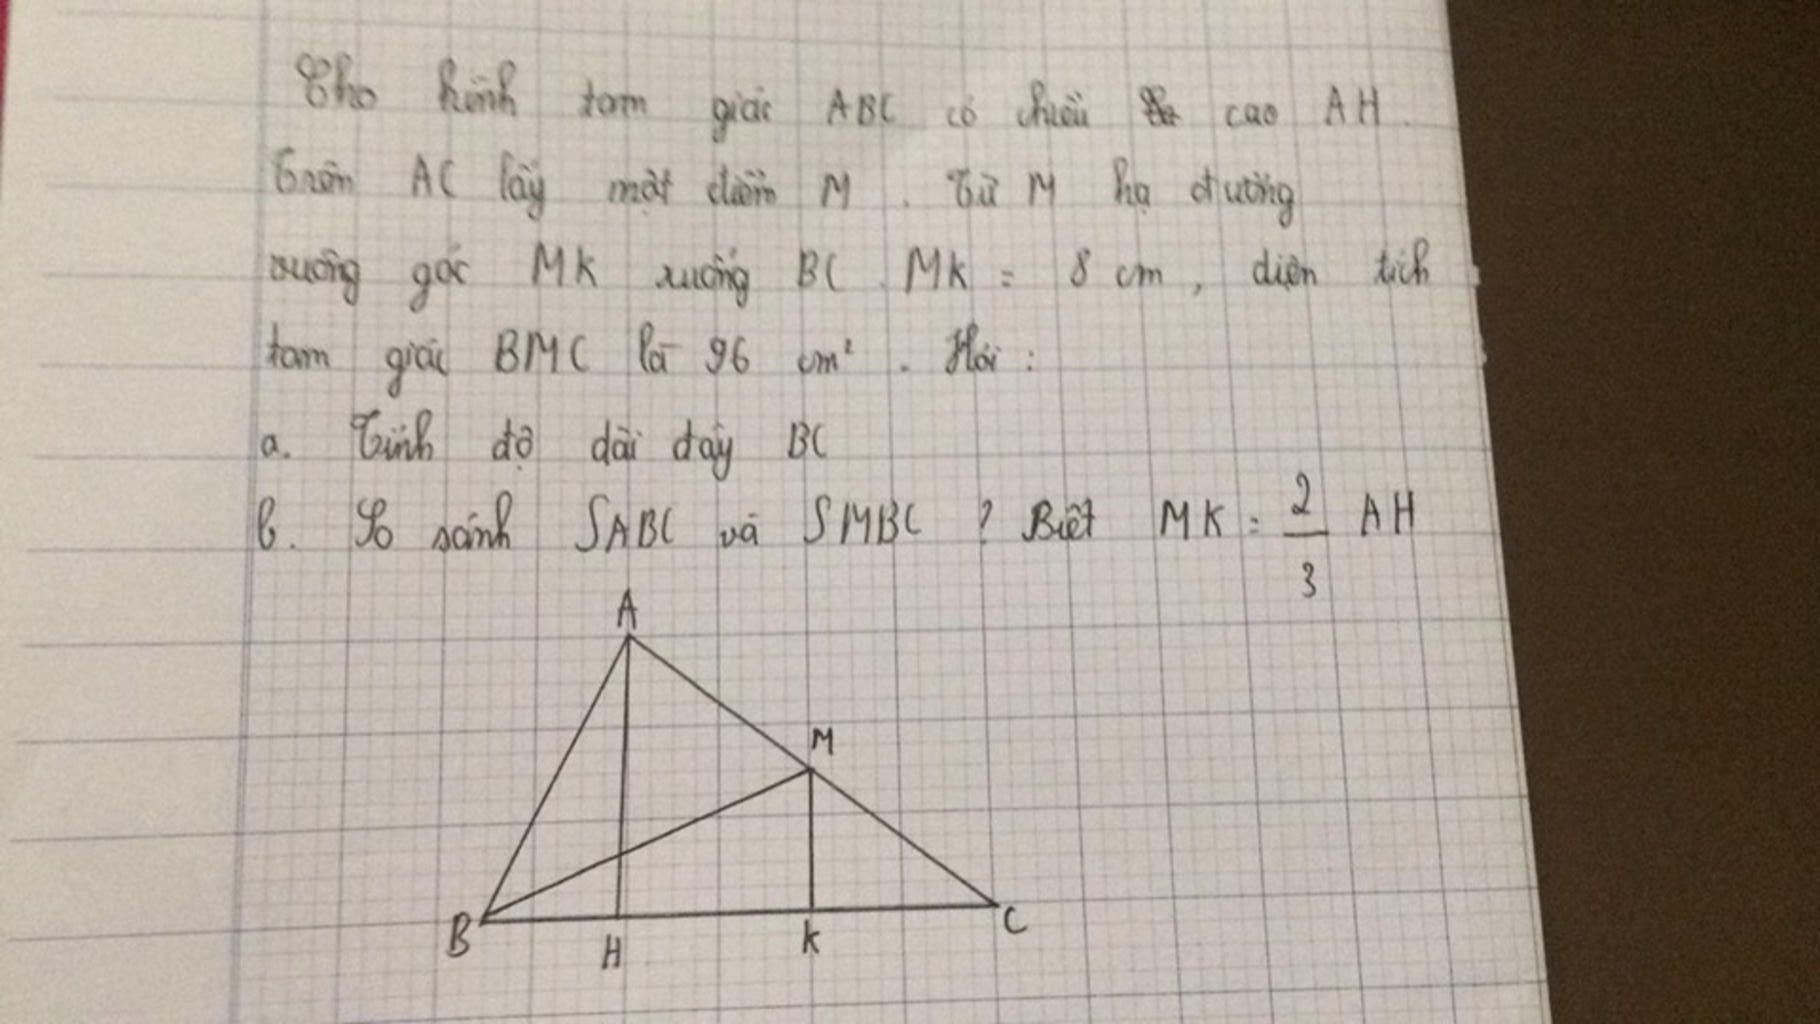 Cho hình tam giác ABC có chiều cao AH.
Trên AC lấy một điểm M. Từ M hạ đường
vuông góc MK xuống BC. MK = 8 cm, diện tích
tam giác BMC là 96 cm². Hỏi:
a. Tính độ dài đáy BC
b. So sánh SABC và SMBC ? Biết MK = 2/3 AH
A
M
B
H
K
C